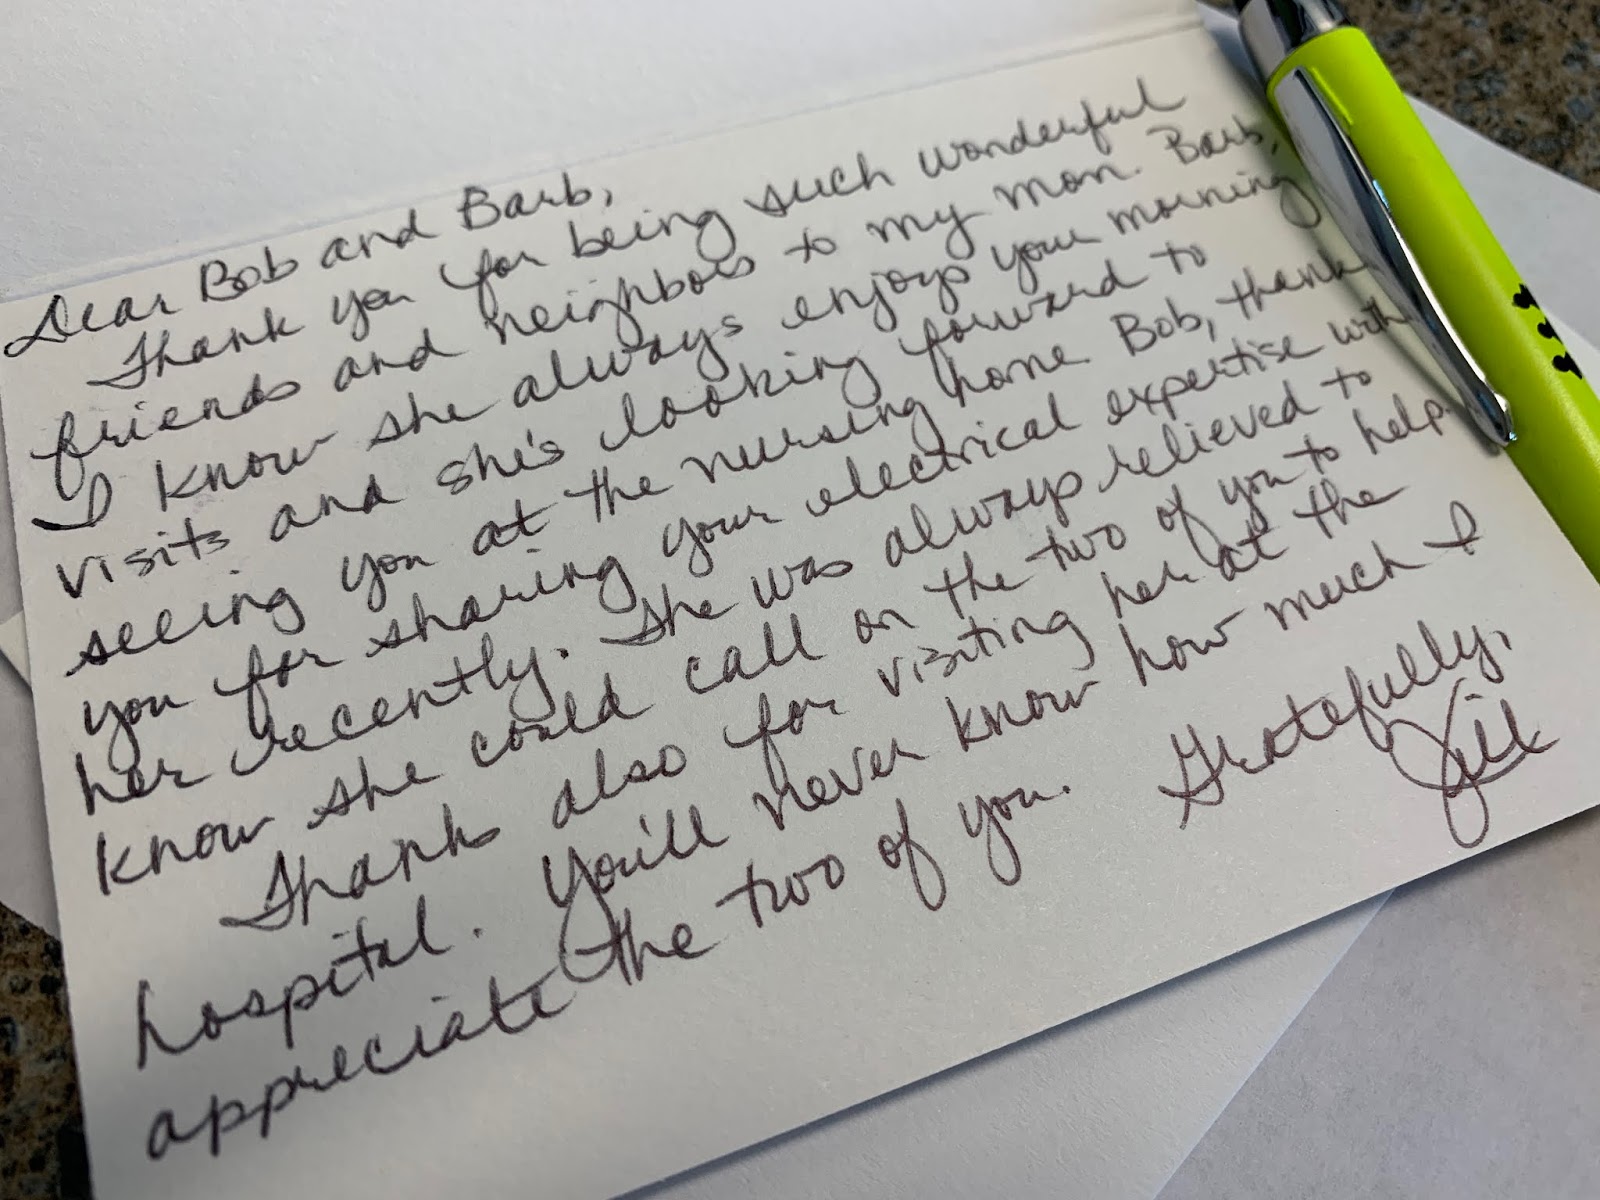 Dear Bob and Barb,
Thank you for being such wonderful
friends and neighbors to my mom. Barb,
I know she always enjoys your morning
visits and she's looking forward to
seeing you at the nursing home. Bob, thank
you for sharing your electrical expertise with
her recently. She was always relieved to
know she could call on the two of you to help.
Thanks also for visiting her at the
hospital. You'll never know how much I
appreciate the two of you. Gratefully,
Jill